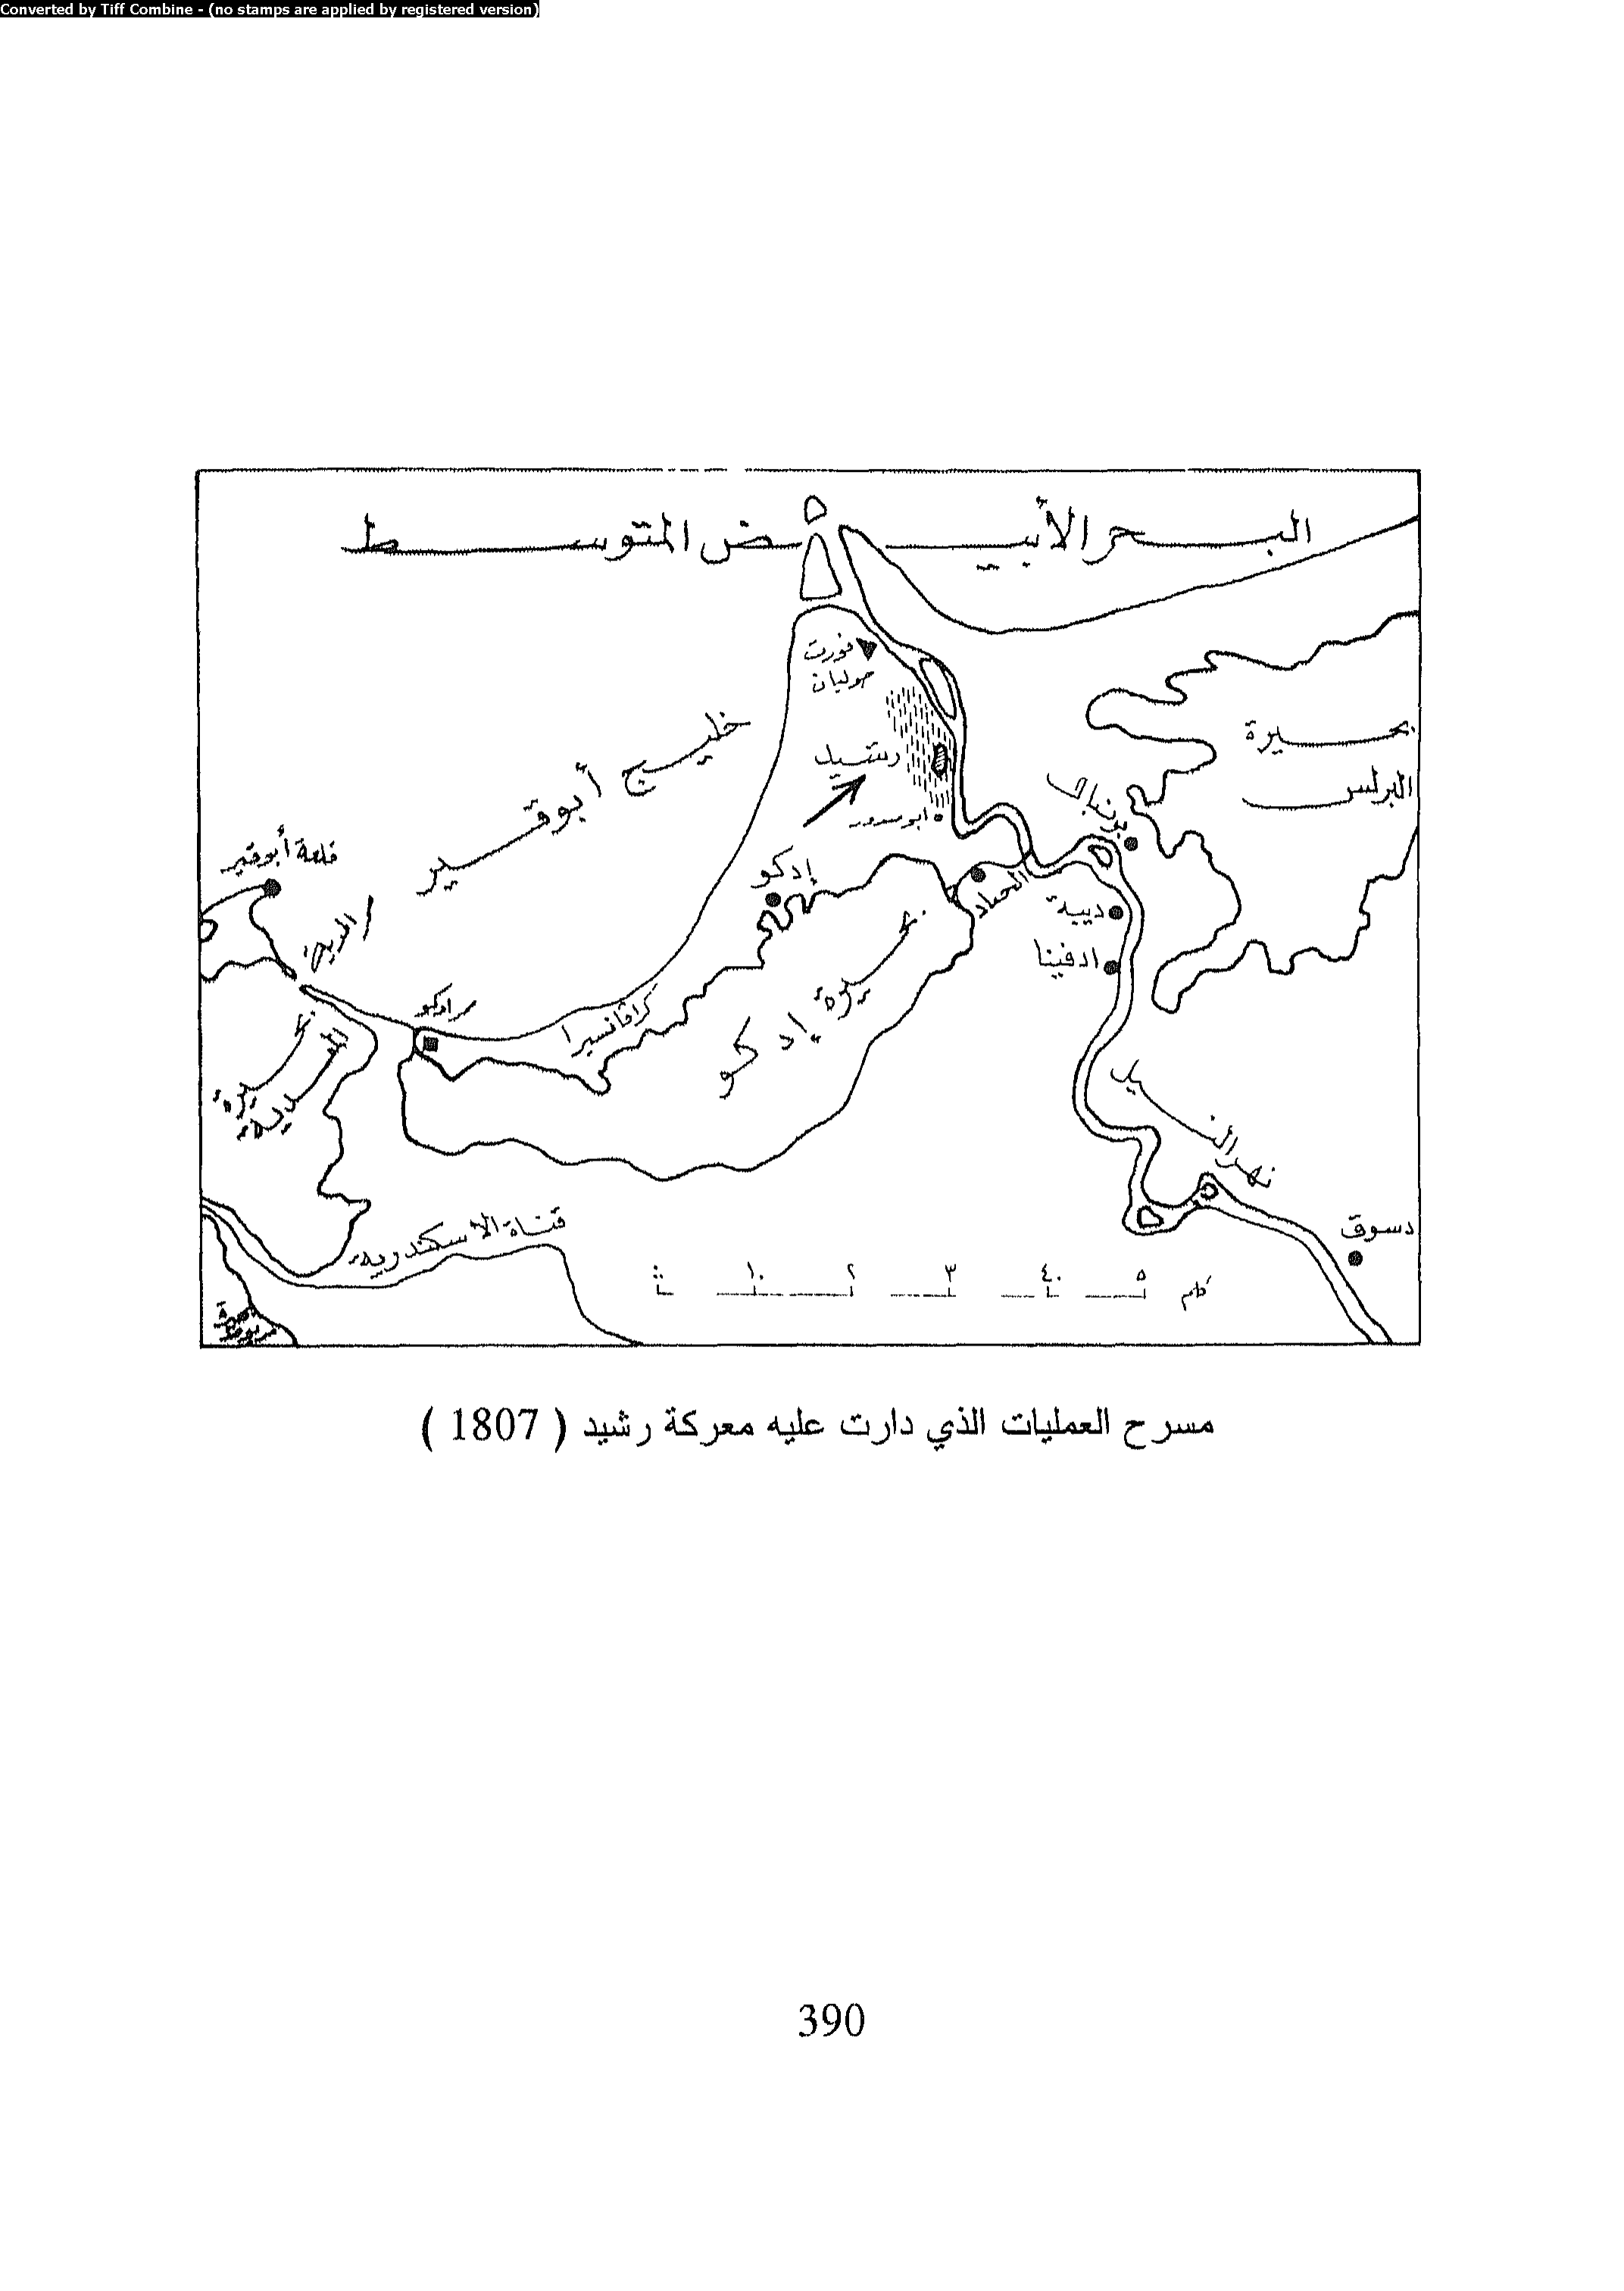 Converted by Tiff Combine - (no stamps are applied by registered version)
البحر الأبيض المتوسط
فورت
جوليان
رشيد
خليج أبوقير
بحيرة
البرلس
قلعة أبوقير
إدكو
الحماد
ديبة
ادفينا
بحيرة إدكو
نهر النيل
دسوق
قناة الاسكندرية
كلم
مسرح العمليات الذي دارت عليه معركة رشيد ( 1807 )
390